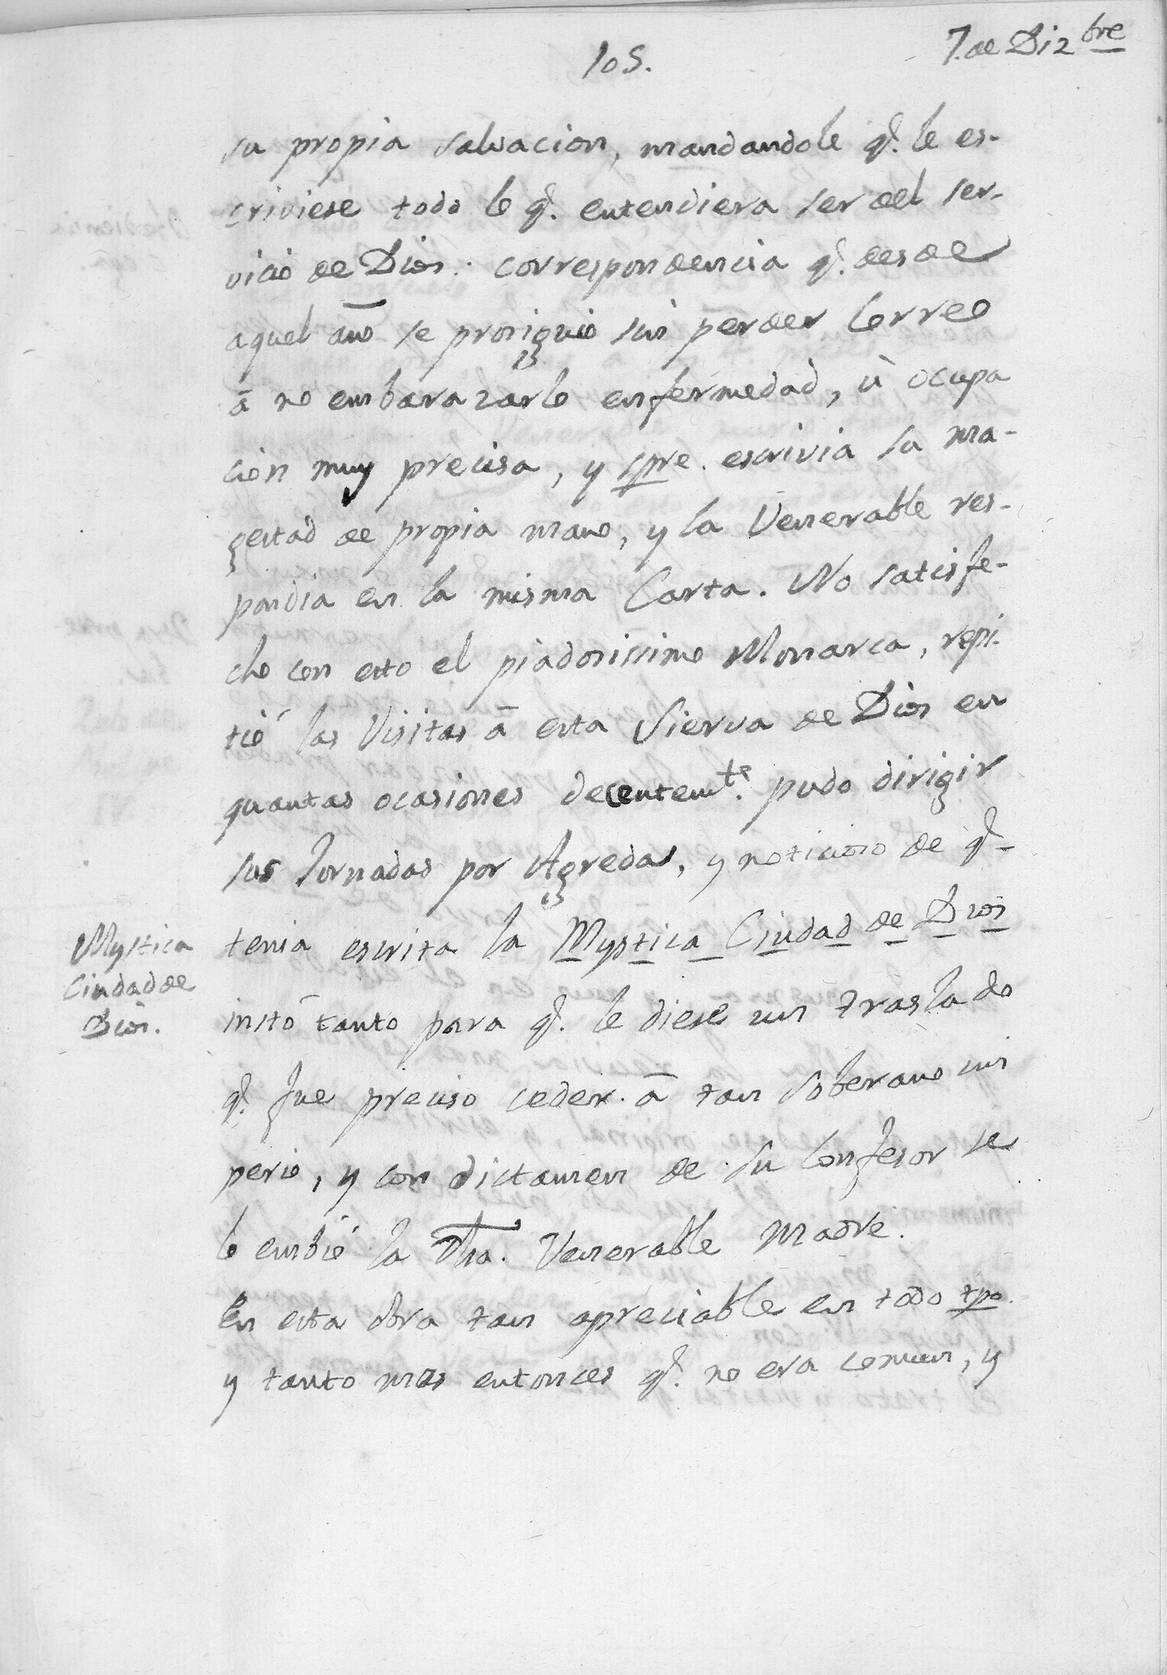 105.
7. de Diz.bre
su propia salvacion, mandandole q.e le es-
criviese todo lo q.e entendiera ser del ser-
vicio de Dios: correspondencia q.e desde
aquel año se prosiguió sin perder Correo
à no embarazarlo enfermedad, ù ocupa
cion muy precisa, y spre. escrivia su ma-
gestad de propia mano, y la Venerable res-
pondia en la misma Carta. No satisfe-
cho con esto el piadosissimo Monarca, repi-
tió las Visitas à esta Sierva de Dios en
quantas ocasiones decentem.te pudo dirigir
sus Jornadas por Agreda, y noticioso de q.e
tenia escrita la Mystica Ciudad de Dios
Mystica
Ciudad de
Dios.
instó tanto para q.e le diese un traslado
q.e fue preciso ceder à tan soberano im
perio, y con dictamen de su Confesor se
lo embió la dha. Venerable Madre.
En esta obra tan apreciable en todo tpo.
y tanto mas entonces q.e no era comun, y